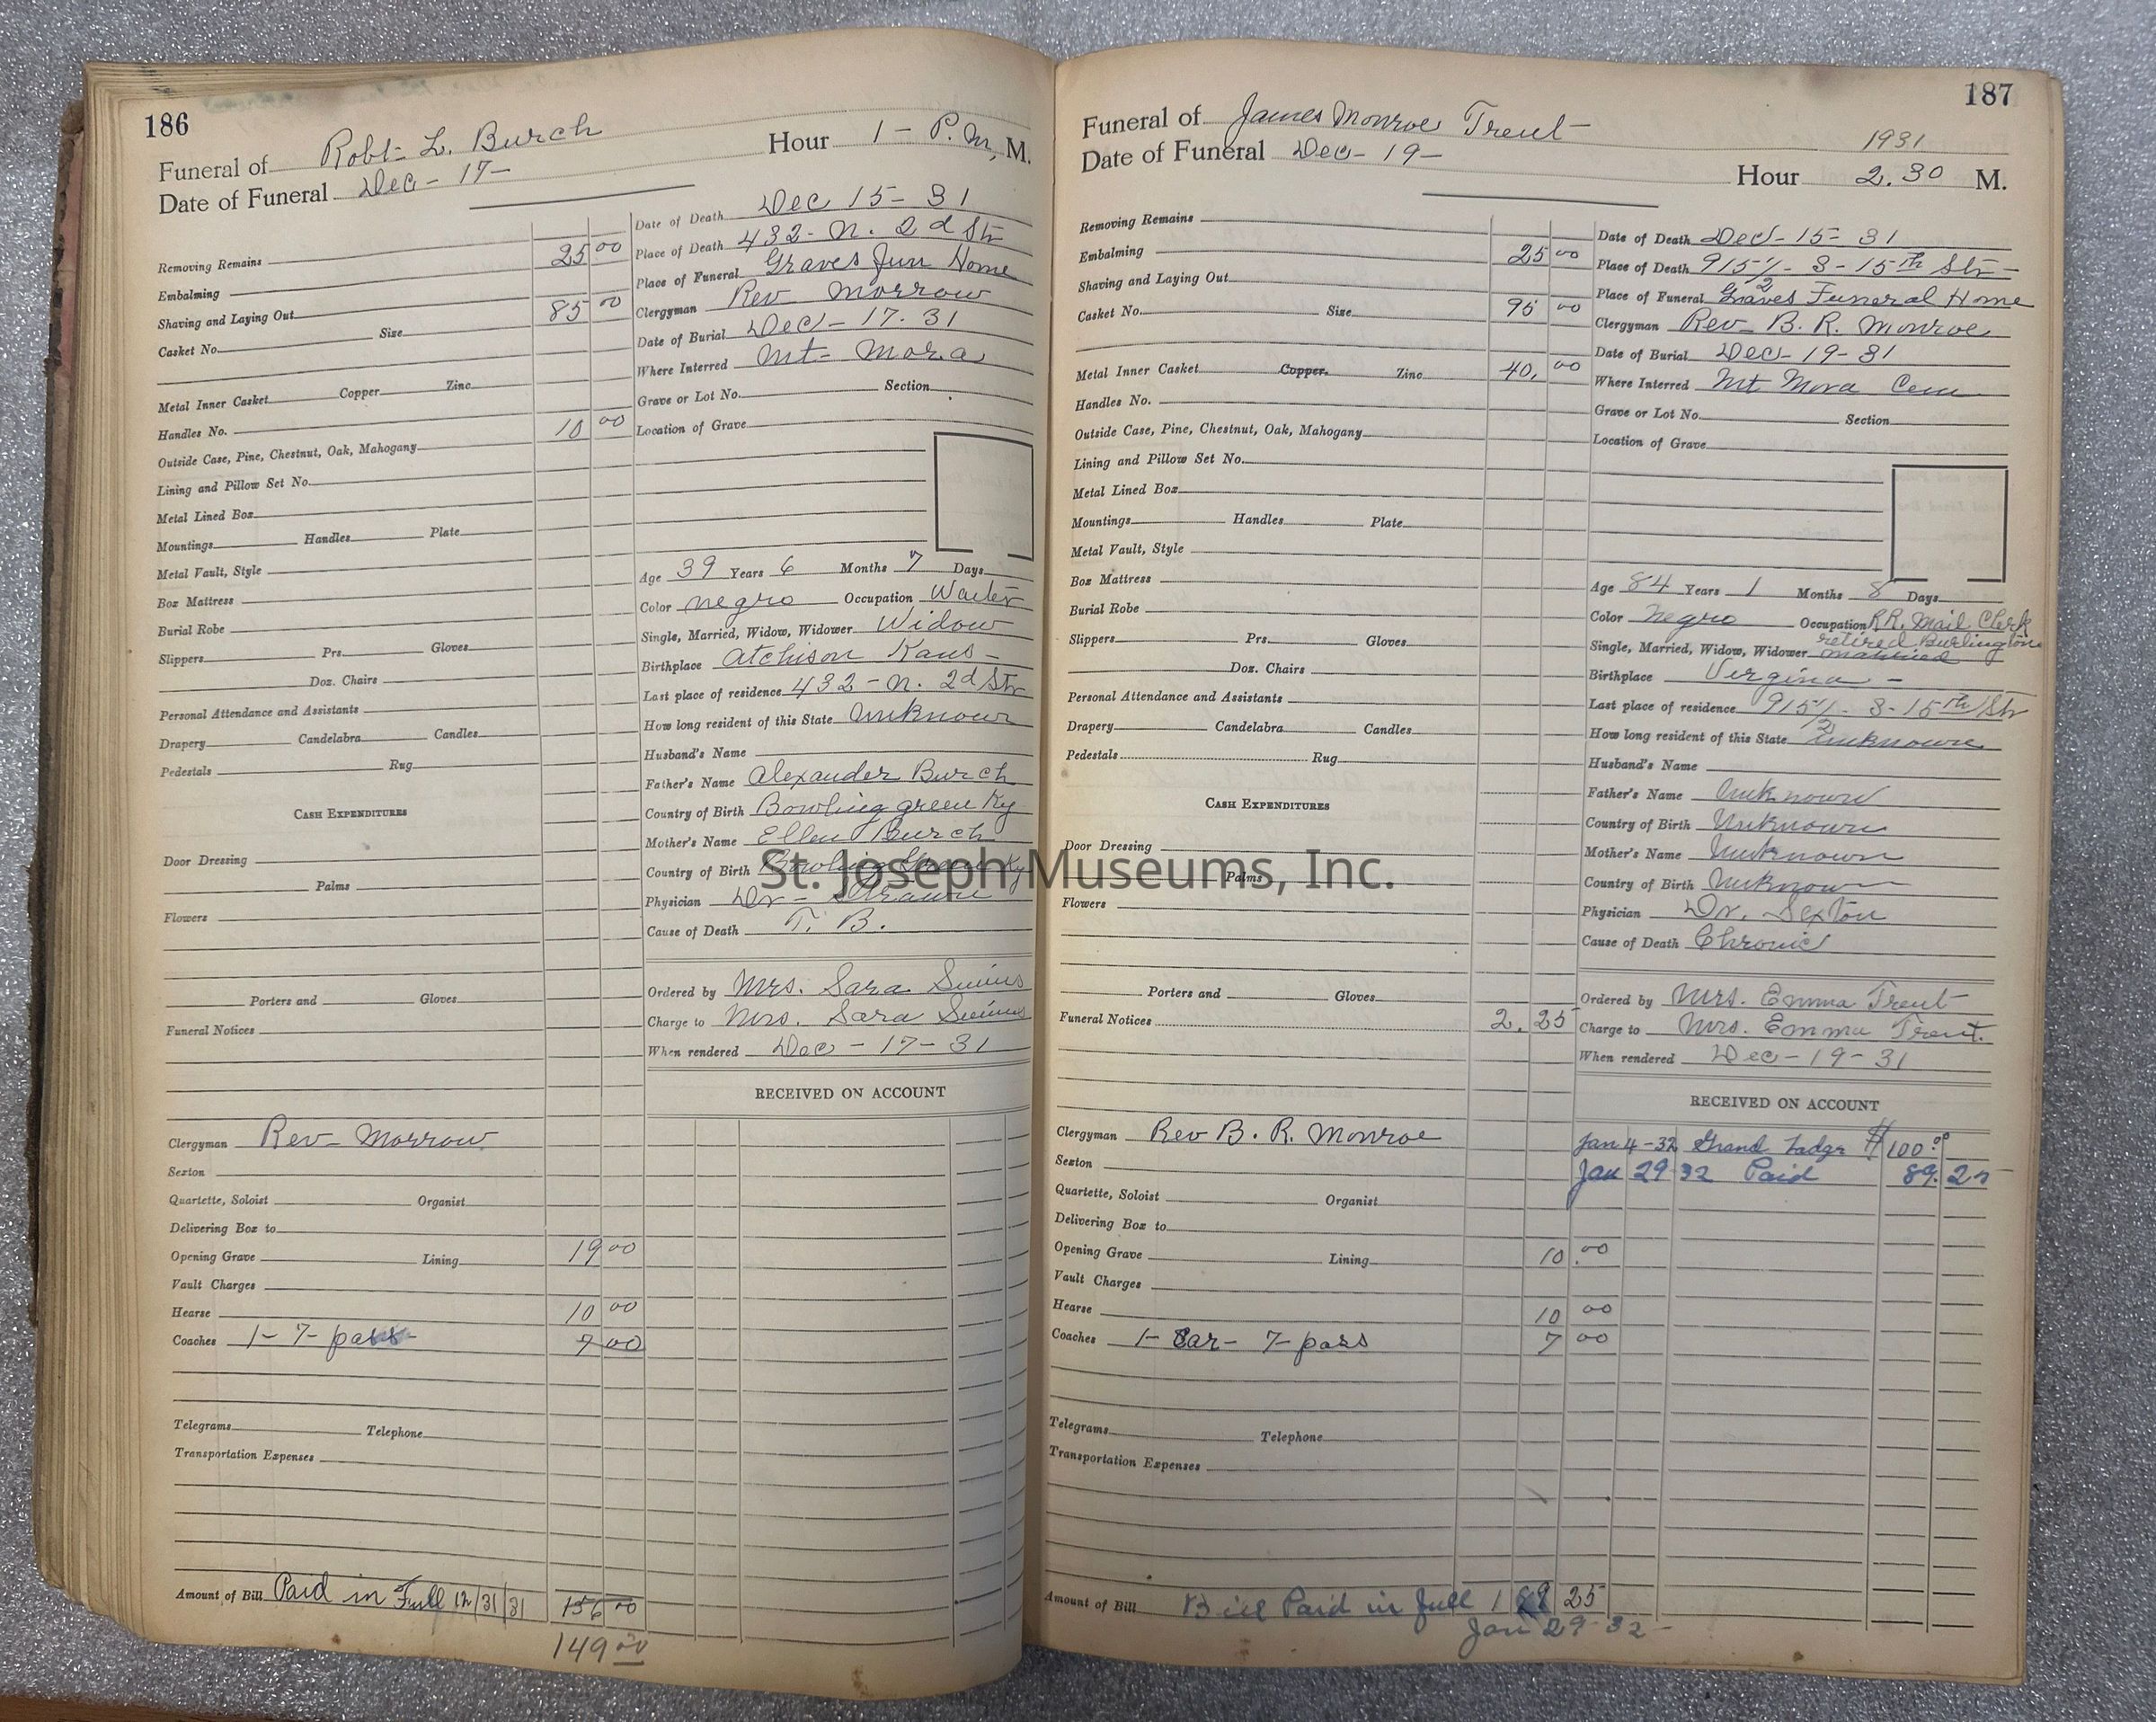 186
Funeral of Robt- L. Burch
Date of Funeral Dec - 17- Hour 1 - P.M, M.
Removing Remains
Embalming 25 00
Shaving and Laying Out
Casket No. Size 85 00
Metal Inner Casket Copper Zinc
Handles No.
Outside Case, Pine, Chestnut, Oak, Mahogany 10 00
Lining and Pillow Set No.
Metal Lined Box
Mountings Handles Plate
Metal Vault, Style
Box Mattress
Burial Robe
Slippers Prs. Gloves
Doz. Chairs
Personal Attendance and Assistants
Drapery Candelabra Candles
Pedestals Rug
CASH EXPENDITURES
Door Dressing
Palms
Flowers
Porters and Gloves
Funeral Notices
Clergyman Rev- Morrow
Sexton
Quartette, Soloist Organist
Delivering Box to
Opening Grave Lining 19 00
Vault Charges
Hearse 10 00
Coaches 1- 7- pass- 7 00
Telegrams Telephone
Transportation Expenses
Amount of Bill Paid in Full 12/31/31 156 00
149 00
Date of Death Dec 15 - 31
Place of Death 432- N. 2d Str
Place of Funeral Graves Fun Home
Clergyman Rev Morrow
Date of Burial Dec - 17. 31
Where Interred Mt- Mora
Grave or Lot No. Section
Location of Grave
Age 39 Years 6 Months 7 Days
Color negro Occupation Waiter
Single, Married, Widow, Widower Widow
Birthplace Atchison Kans -
Last place of residence 432 - N. 2d Str
How long resident of this State Unknown
Husband's Name
Father's Name Alexander Burch
Country of Birth Bowling green Ky
Mother's Name Ellen Burch
Country of Birth Bowling Green Ky
Physician Dr -
Cause of Death T. B.
Ordered by Mrs. Sara
Charge to Mrs. Sara
When rendered Dec - 17 - 31
RECEIVED ON ACCOUNT
187
Funeral of James Monroe Trent
1931
Date of Funeral Dec - 19 - Hour 2.30 M.
Removing Remains
Embalming 25 00
Shaving and Laying Out
Casket No. Size 95 00
Metal Inner Casket Copper Zinc 40, 00
Handles No.
Outside Case, Pine, Chestnut, Oak, Mahogany
Lining and Pillow Set No.
Metal Lined Box
Mountings Handles Plate
Metal Vault, Style
Box Mattress
Burial Robe
Slippers Prs. Gloves
Doz. Chairs
Personal Attendance and Assistants
Drapery Candelabra Candles
Pedestals Rug
CASH EXPENDITURES
Door Dressing
Palms
Flowers
Porters and Gloves
Funeral Notices 2. 25
Clergyman Rev B. R. Monroe
Sexton
Quartette, Soloist Organist
Delivering Box to
Opening Grave Lining 10 .00
Vault Charges
Hearse 10 00
Coaches 1- Car- 7- pass 7 00
Telegrams Telephone
Transportation Expenses
Amount of Bill Bill Paid in full 189 25
Jan 29 - 32 -
Date of Death Dec - 15 - 31
Place of Death 915 1/2 - S - 15th Str -
Place of Funeral Graves Funeral Home
Clergyman Rev- B. R. Monroe
Date of Burial Dec - 19 - 31
Where Interred Mt Mora Cem
Grave or Lot No. Section
Location of Grave
Age 84 Years 1 Months 8 Days
Color Negro Occupation RR. Mail Clerk
retired Burlington
Single, Married, Widow, Widower married
Birthplace Vergina -
Last place of residence 915 1/2 - S - 15th Str
How long resident of this State Unknown
Husband's Name
Father's Name Unknown
Country of Birth Unknown
Mother's Name Unknown
Country of Birth Unknown
Physician Dr. Sexton
Cause of Death Chronic
Ordered by Mrs. Emma Trent
Charge to Mrs. Emma Trent.
When rendered Dec - 19 - 31
RECEIVED ON ACCOUNT
Jan 4 - 32 Grand Lodge $100.00
Jan 29 32 Paid 89. 25
St. Joseph Museums, Inc.